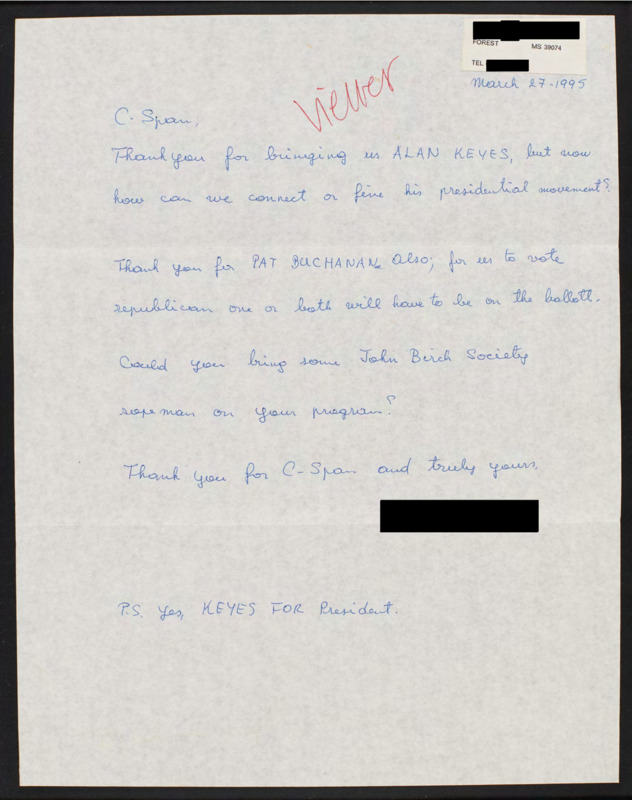 FOREST MS 39074
TEL
March 27-1995
Viewer
C-Span,
Thank you for bringing us ALAN KEYES, but now
how can we connect or fine his presidential movement?
Thank you for PAT BUCHANAN also; for us to vote
republican one or both will have to be on the ballott.
Could you bring some John Birch Society
man on your program?
Thank you for C-Span and truly yours,
P.S. Yes, KEYES FOR President.